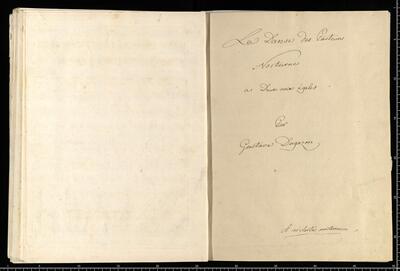 La Danse des
Nocturne
a Deux voix égales
Par
Gustave Dugazon